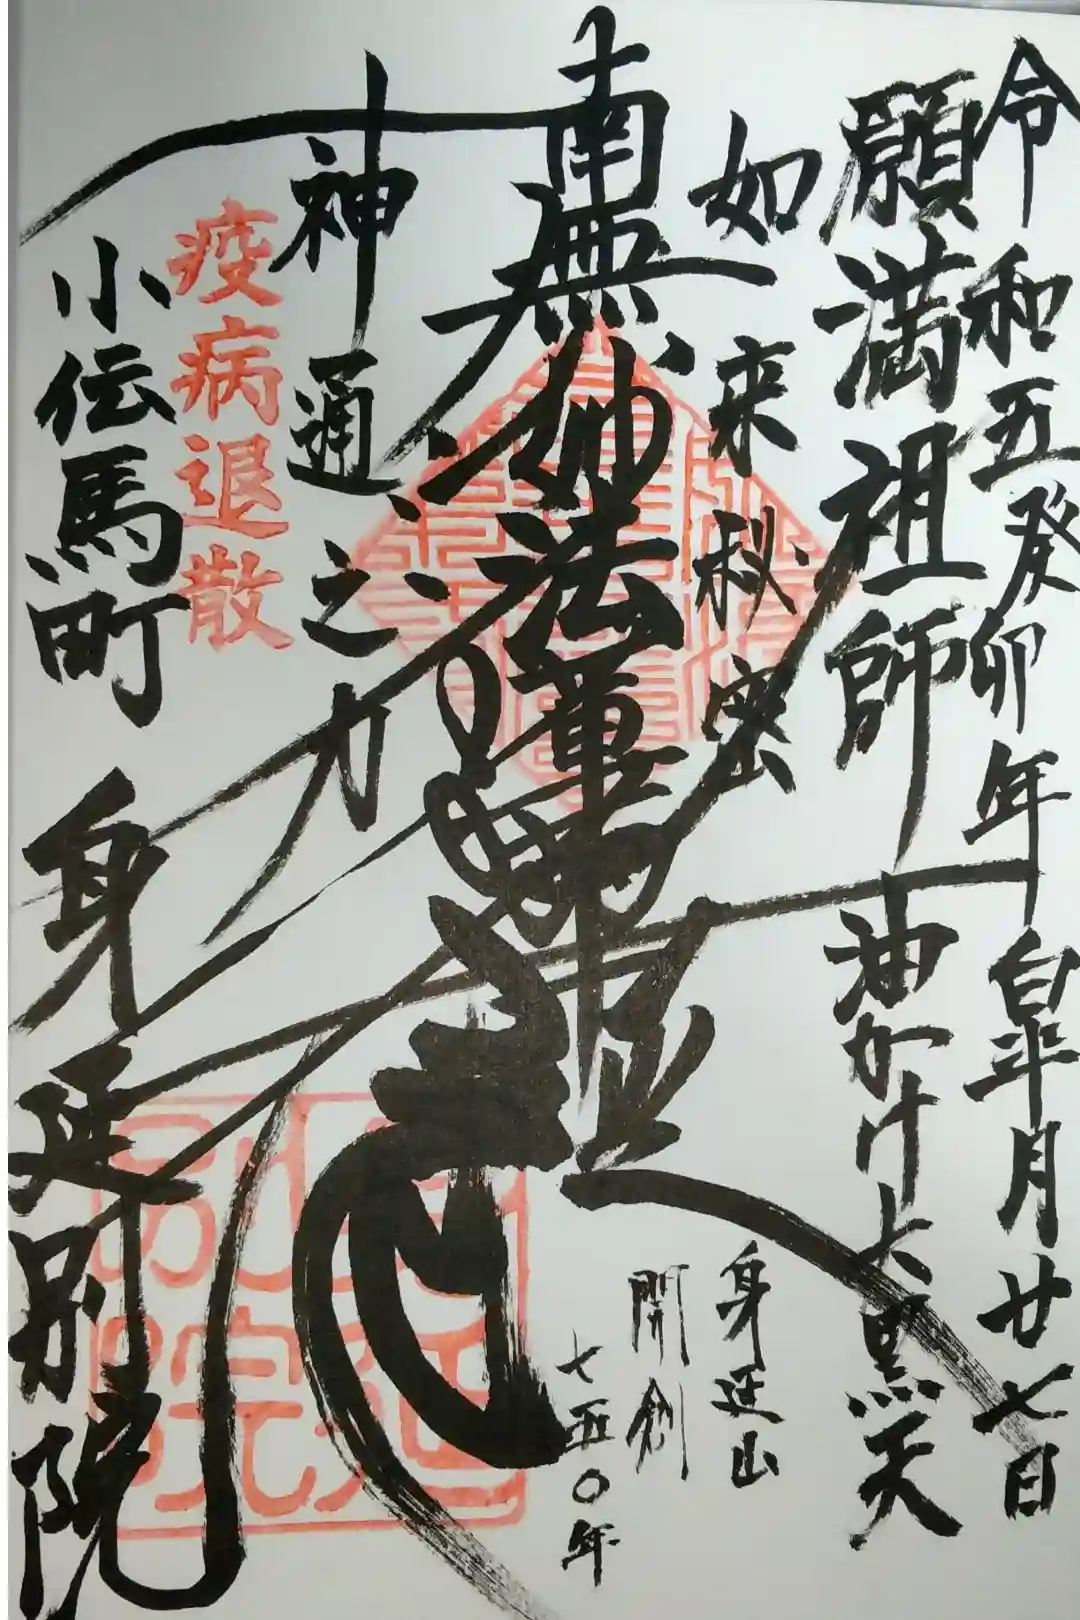 令和五癸卯年皐月廿七日
願満祖師 油かけ大黒天
如来秘密
身延山
開創
七五〇年
南無妙法蓮華経
神通之力
疫病退散
小伝馬町
身延別院